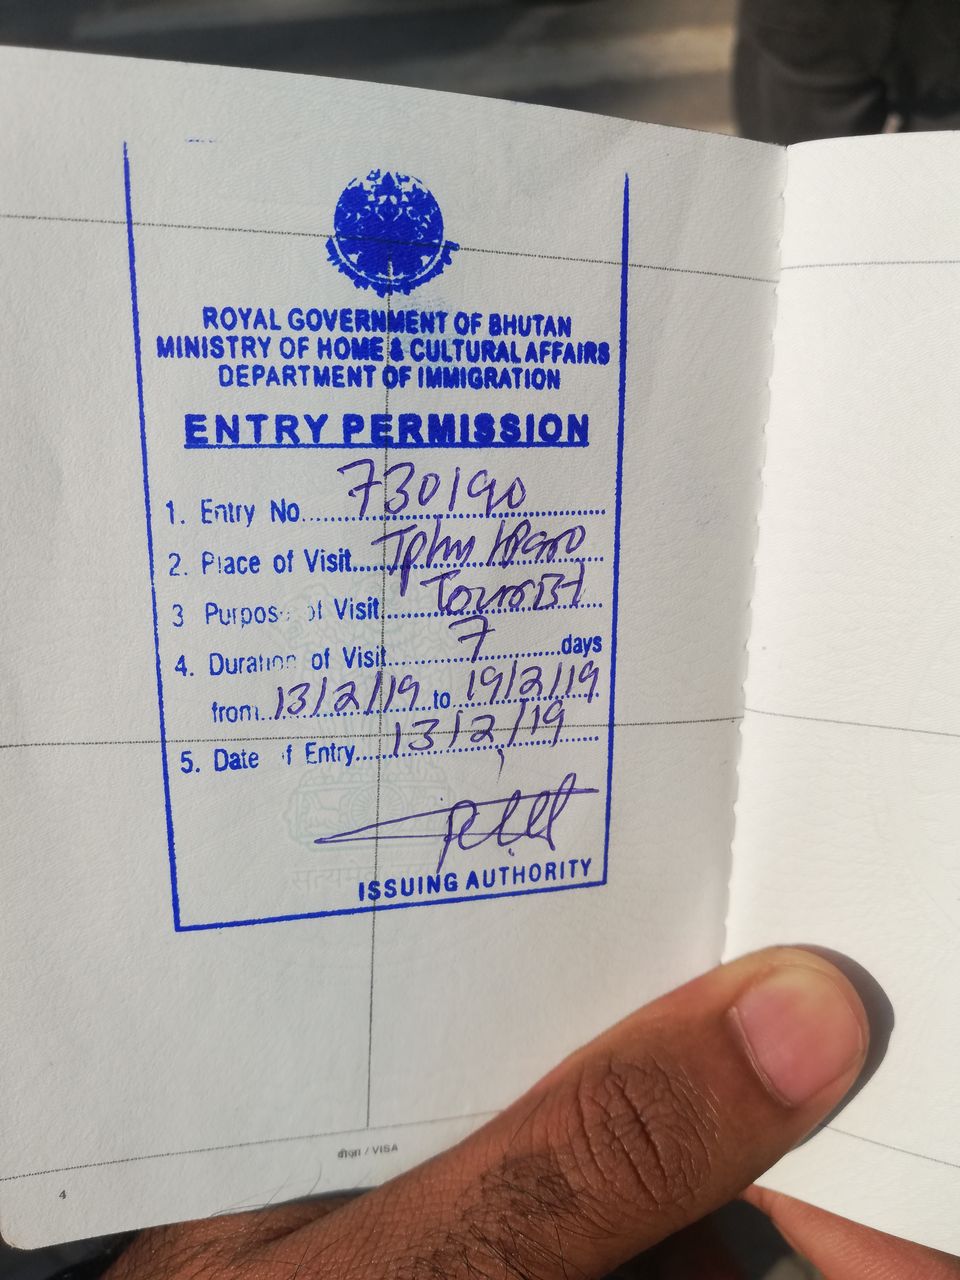 ROYAL GOVERNMENT OF BHUTAN
MINISTRY OF HOME & CULTURAL AFFAIRS
DEPARTMENT OF IMMIGRATION
ENTRY PERMISSION
1. Entry No. 730190
2. Place of Visit Tphu / Paro
3 Purpose of Visit Tourist
4. Duration of Visit 7 days
from 13/2/19 to 19/2/19
5. Date of Entry 13/2/19
ISSUING AUTHORITY
सत्यमेव
वीज़ा / VISA
4